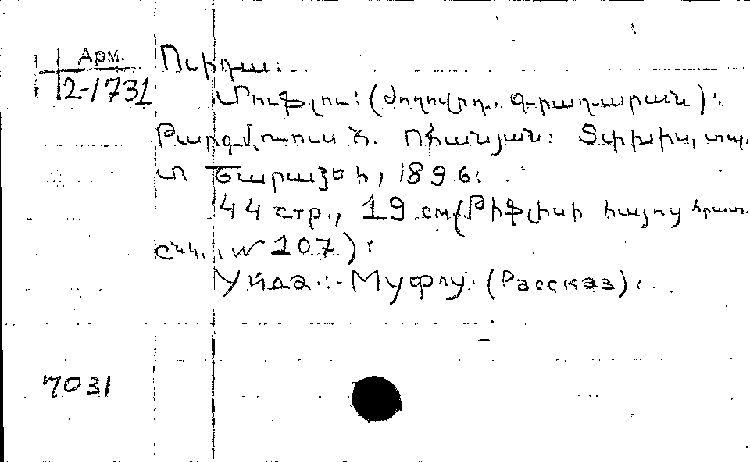 Арм.
2-1731
Ուիդա:
Մուֆլու: (ժողովրդ. գրադարան):
Թարգմ. ռուս Տփխիս, տպ.
1896:
44 стр., 19 см (Թիֆլիսի հայոց հրատ.
ընկ., № 107):
Уйда.- Муфлу. (Рассказ).
7031